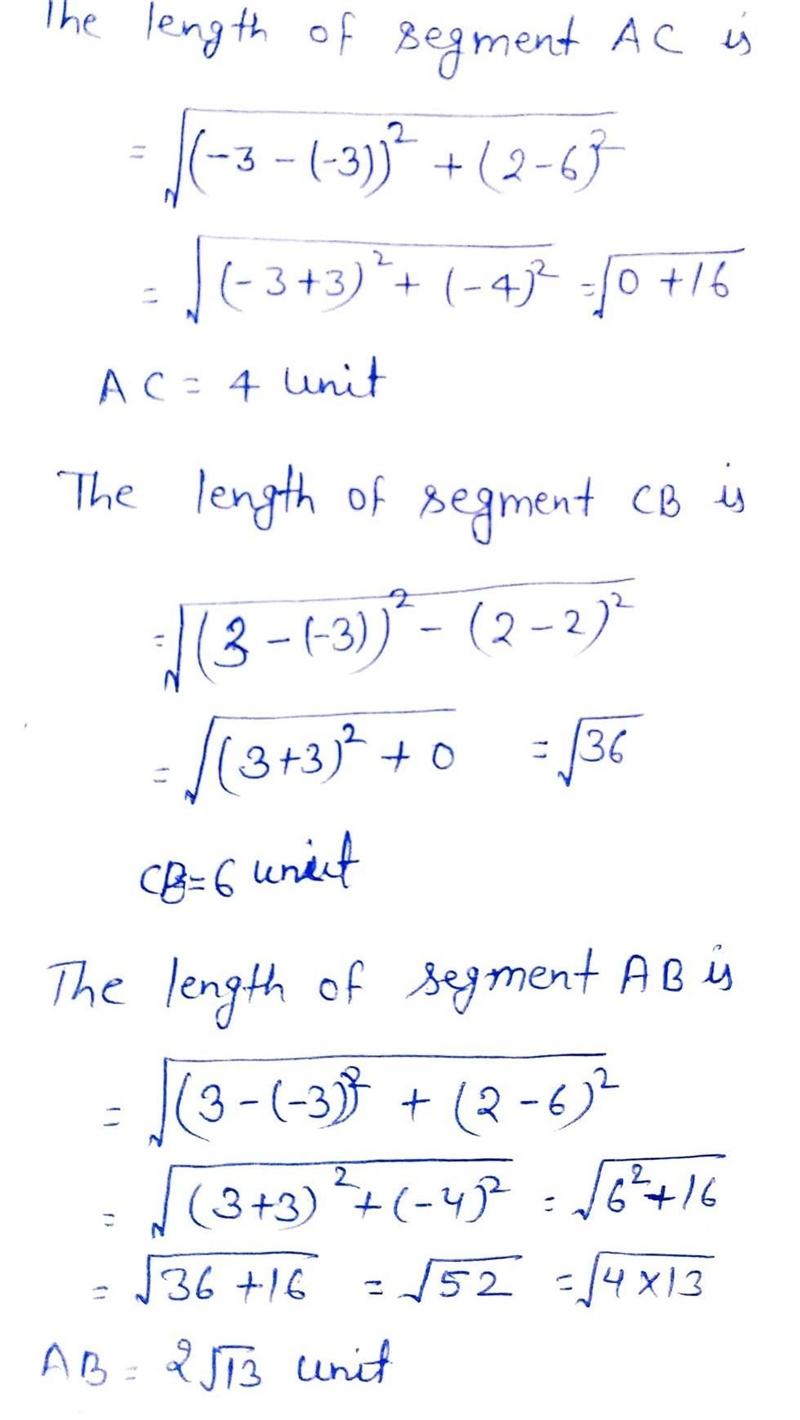 The length of segment AC is
= √((-3 - (-3))² + (2-6)²)
= √((-3+3)² + (-4)²) = √(0 + 16)
AC = 4 unit
The length of segment CB is
= √((3 - (-3))² - (2 - 2)²)
= √((3+3)² + 0) = √36
CB = 6 unit
The length of segment AB is
= √((3 - (-3))² + (2 - 6)²)
= √((3+3)² + (-4)²) = √(6² + 16)
= √(36 + 16) = √52 = √(4 × 13)
AB = 2√13 unit